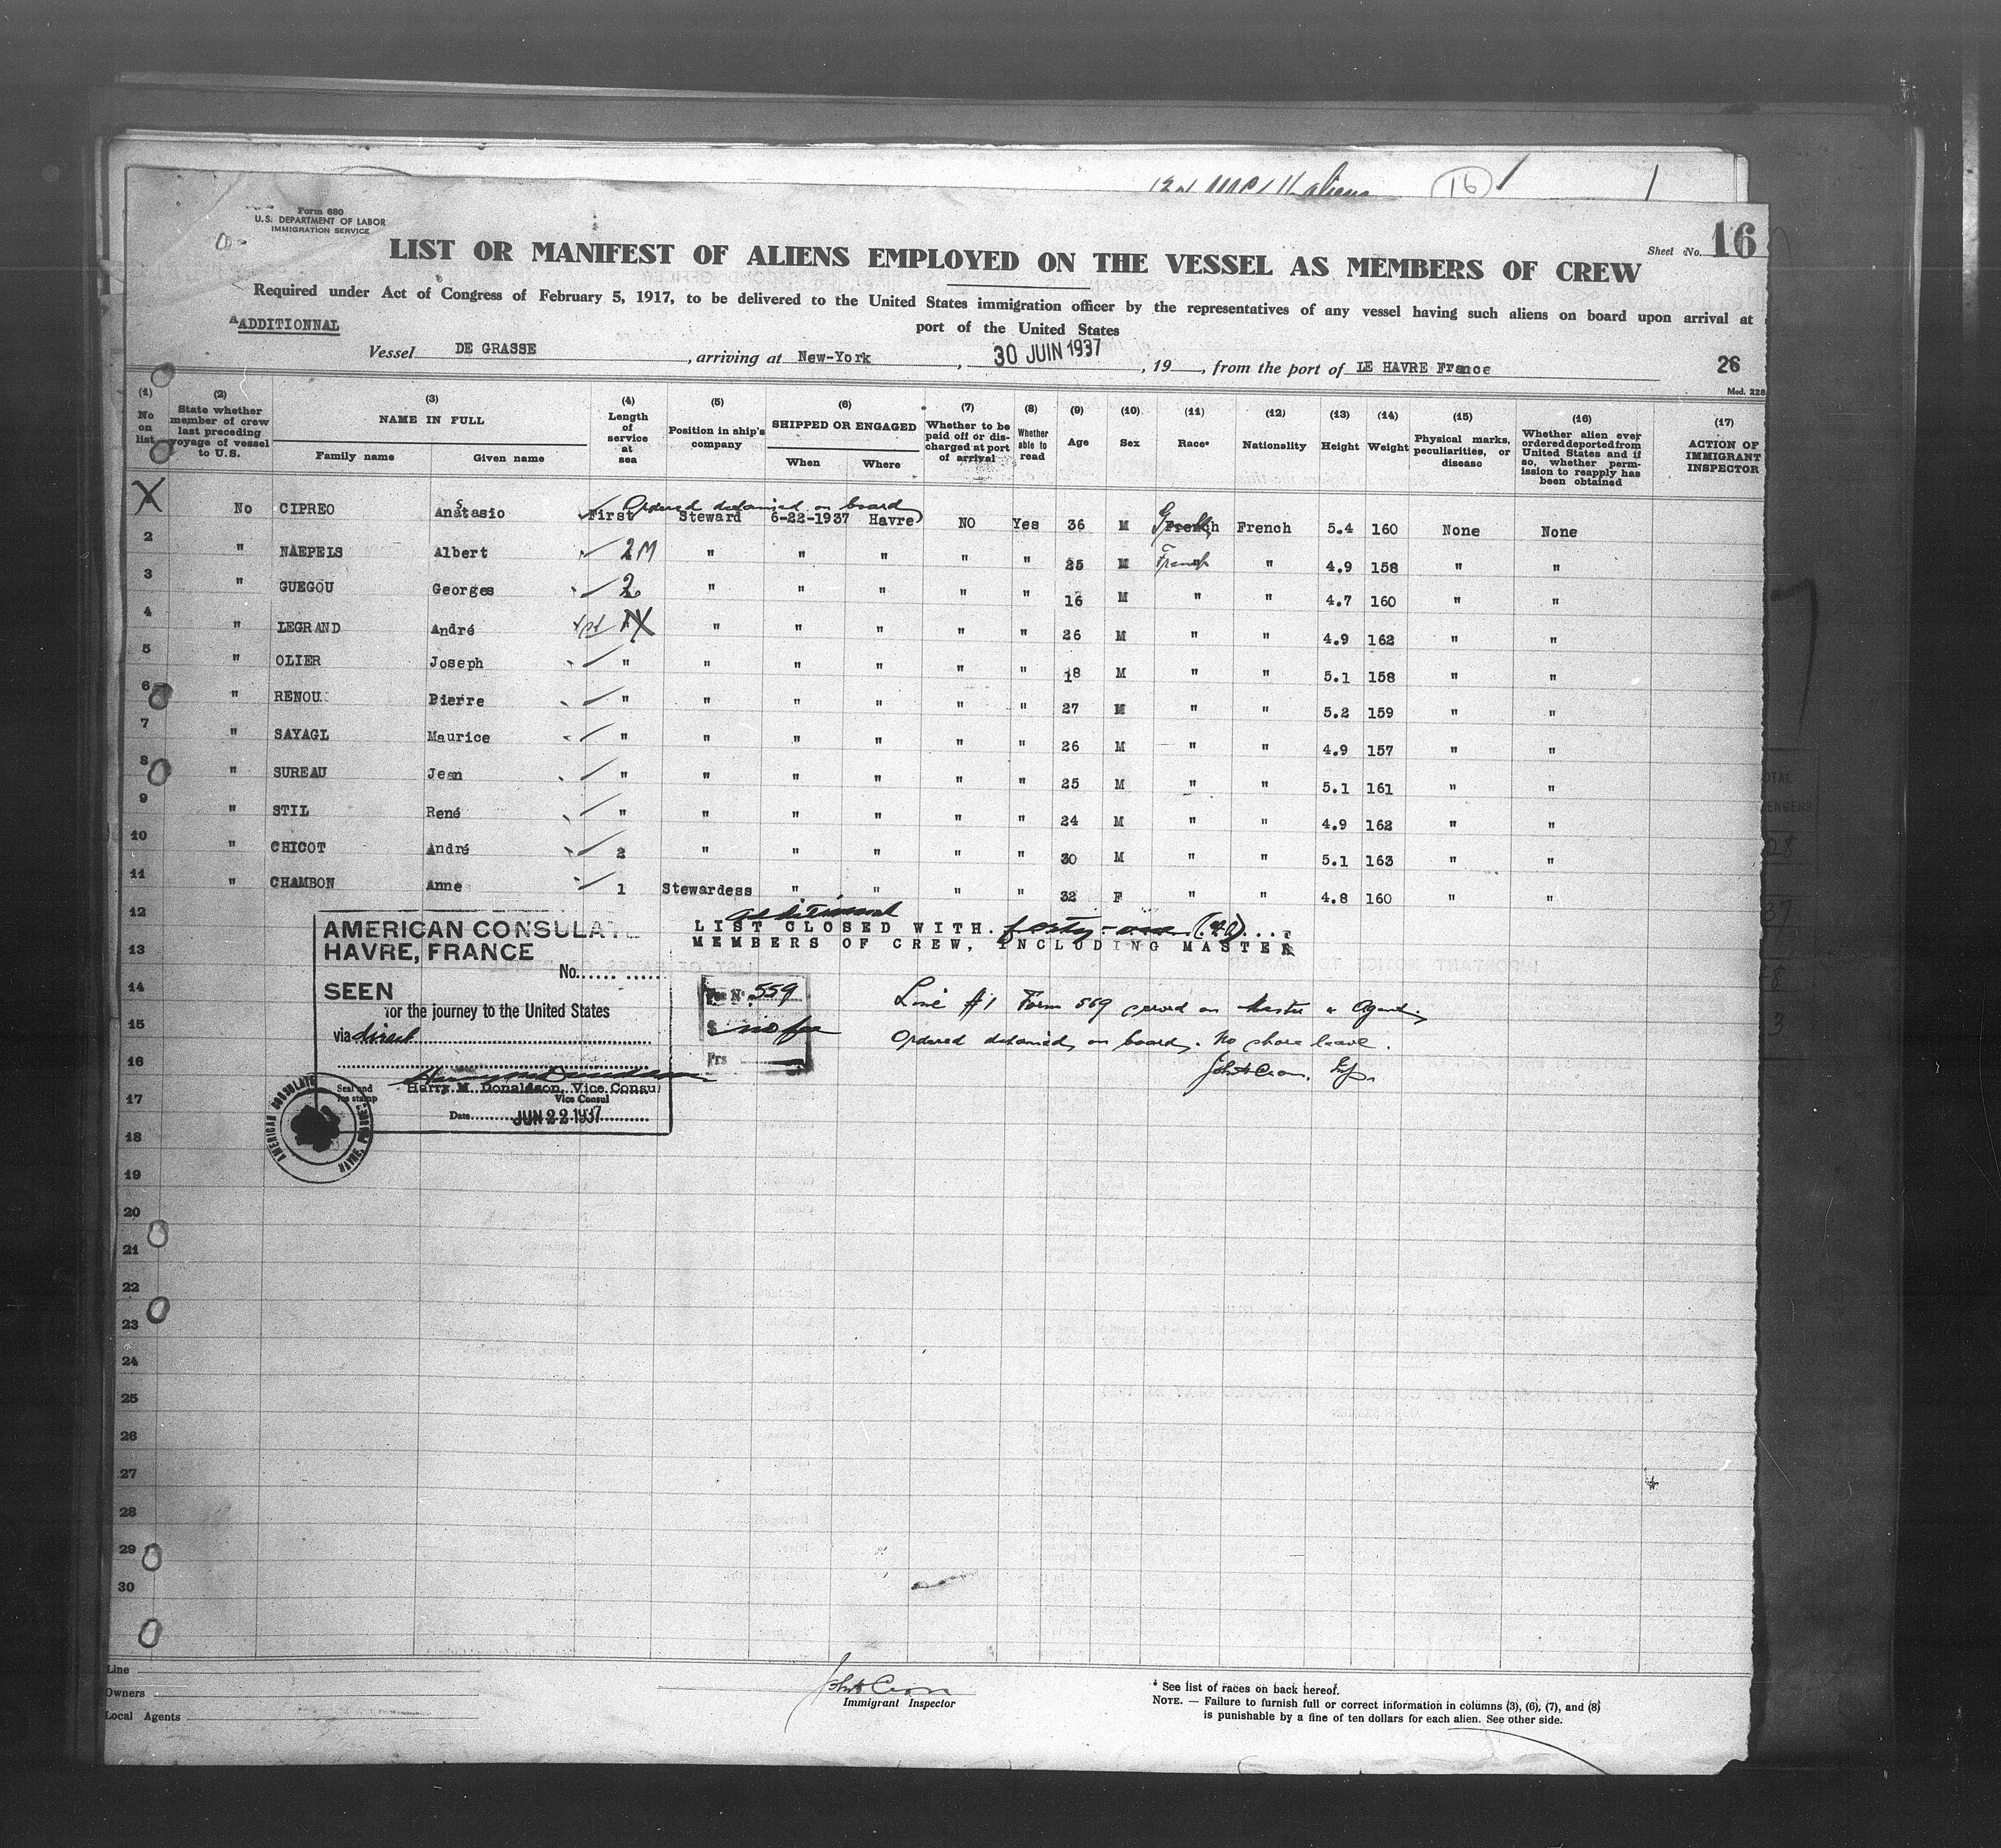 Form 680
U.S. DEPARTMENT OF LABOR
IMMIGRATION SERVICE
16
Sheet No. 16
LIST OR MANIFEST OF ALIENS EMPLOYED ON THE VESSEL AS MEMBERS OF CREW
Required under Act of Congress of February 5, 1917, to be delivered to the United States immigration officer by the representatives of any vessel having such aliens on board upon arrival at
port of the United States
ADDITIONNAL
Vessel DE GRASSE, arriving at New-York, 30 JUIN 1937, 19, from the port of LE HAVRE France
26
Mod. 228
(1) No on list
(2) State whether member of crew last preceding voyage of vessel to U.S.
(3) NAME IN FULL Family name Given name
(4) Length of service at sea
(5) Position in ship's company
(6) SHIPPED OR ENGAGED When Where
(7) Whether to be paid off or discharged at port of arrival
(8) Whether able to read
(9) Age
(10) Sex
(11) Race*
(12) Nationality
(13) Height
(14) Weight
(15) Physical marks, peculiarities, or disease
(16) Whether alien ever ordered deported from United States and if so, whether permission to reapply has been obtained
(17) ACTION OF IMMIGRANT INSPECTOR
Ordered detained on board
X No CIPREO Anatasio First Steward 6-22-1937 Havre NO Yes 36 M French French 5.4 160 None None
2 " NAEPELS Albert 2M " " " " " 25 M French " 4.9 158 " "
3 " GUEGOU Georges 2 " " " " " 16 M " " 4.7 160 " "
4 " LEGRAND André " " " " " 26 M " " 4.9 162 " "
5 " OLIER Joseph " " " " " " 18 M " " 5.1 158 " "
6 " RENOU Pierre " " " " " " 27 M " " 5.2 159 " "
7 " SAYAGL Maurice " " " " " " 26 M " " 4.9 157 " "
8 " SUREAU Jean " " " " " " 25 M " " 5.1 161 " "
9 " STIL René " " " " " " 24 M " " 4.9 162 " "
10 " CHICOT André 2 " " " " " 30 M " " 5.1 163 " "
11 " CHAMBON Anne 1 Stewardess " " " " 32 F " " 4.8 160 " "
12
13
14
15
16
17
18
19
20
21
22
23
24
25
26
27
28
29
30
additional
LIST CLOSED WITH forty-one
MEMBERS OF CREW, INCLUDING MASTER
AMERICAN CONSULATE
HAVRE, FRANCE
No.
SEEN
for the journey to the United States
via direct
Harry M. Donaldson, Vice Consul
Vice Consul
Seal and
fee stamp
Date JUN 22 1937
AMERICAN CONSULATE
Fee No. 559
$ no fee
Frs
Line #1 Form 569 served on Master & Agent.
Ordered detained on board. No shore leave.
Line
Owners
Local Agents
Immigrant Inspector
* See list of races on back hereof.
NOTE. — Failure to furnish full or correct information in columns (3), (6), (7), and (8)
is punishable by a fine of ten dollars for each alien. See other side.